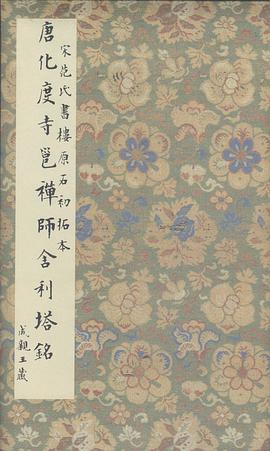 宋范氏書樓原石初拓本
唐化度寺邕禪師舍利塔銘
成親王藏